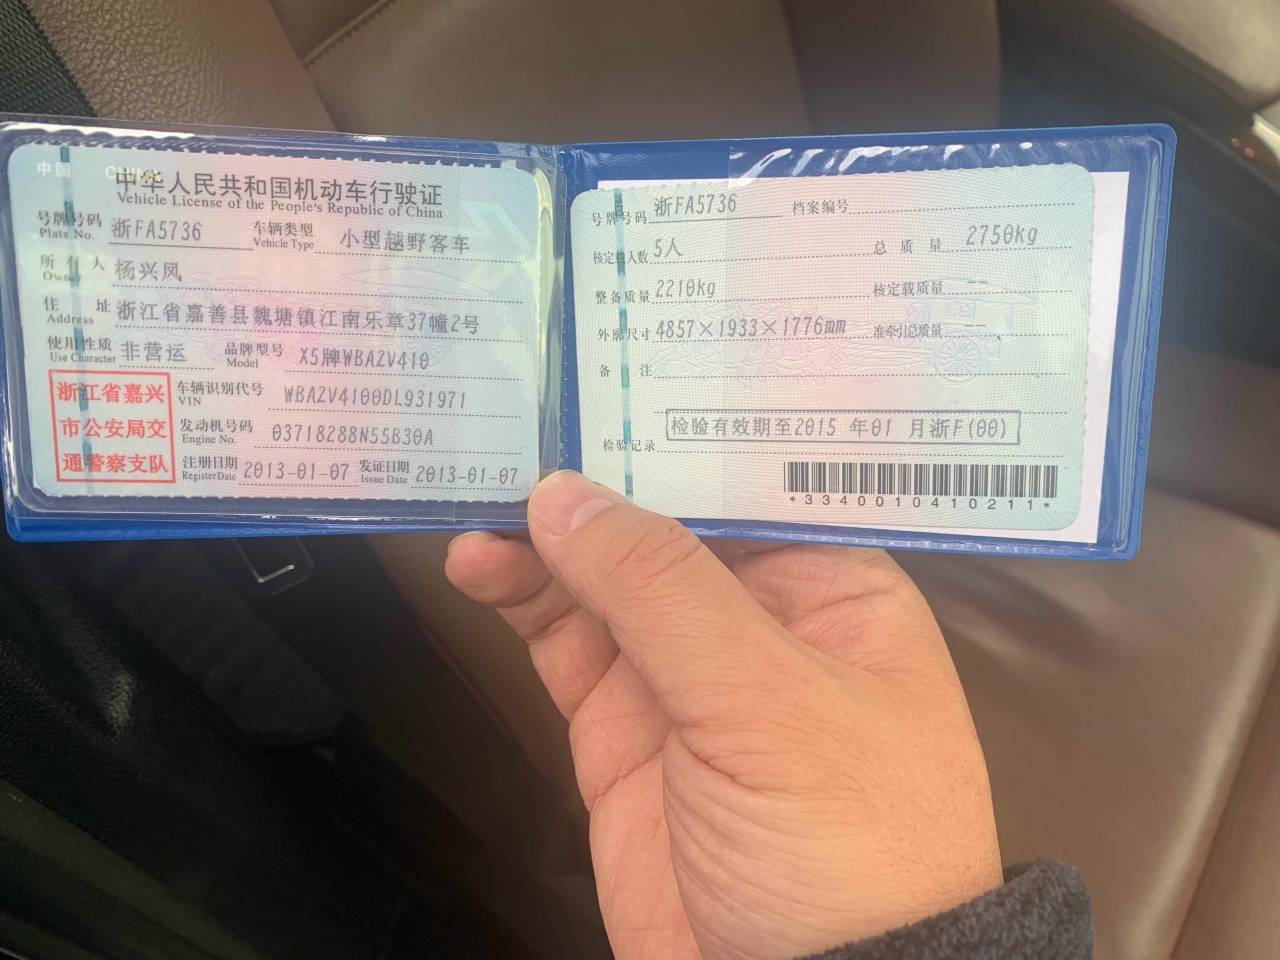 中国 CHINA
中华人民共和国机动车行驶证
Vehicle License of the People's Republic of China
号牌号码 浙FA5736 车辆类型 小型越野客车
Plate No. Vehicle Type
所有人 杨兴凤
Owner
住址 浙江省嘉善县魏塘镇江南乐章37幢2号
Address
使用性质 非营运 品牌型号 X5牌WBAZV410
Use Character Model
浙江省嘉兴
市公安局交
通警察支队
车辆识别代号 WBAZV4100DL931971
VIN
发动机号码 03718288N55B30A
Engine No.
注册日期 2013-01-07 发证日期 2013-01-07
Register Date Issue Date
号牌号码 浙FA5736 档案编号
核定载人数 5人 总质量 2750kg
整备质量 2210kg 核定载质量 --
外廓尺寸 4857×1933×1776mm 准牵引总质量 --
备注
检验有效期至2015 年01 月浙F(00)
检验记录
*3340010410211*